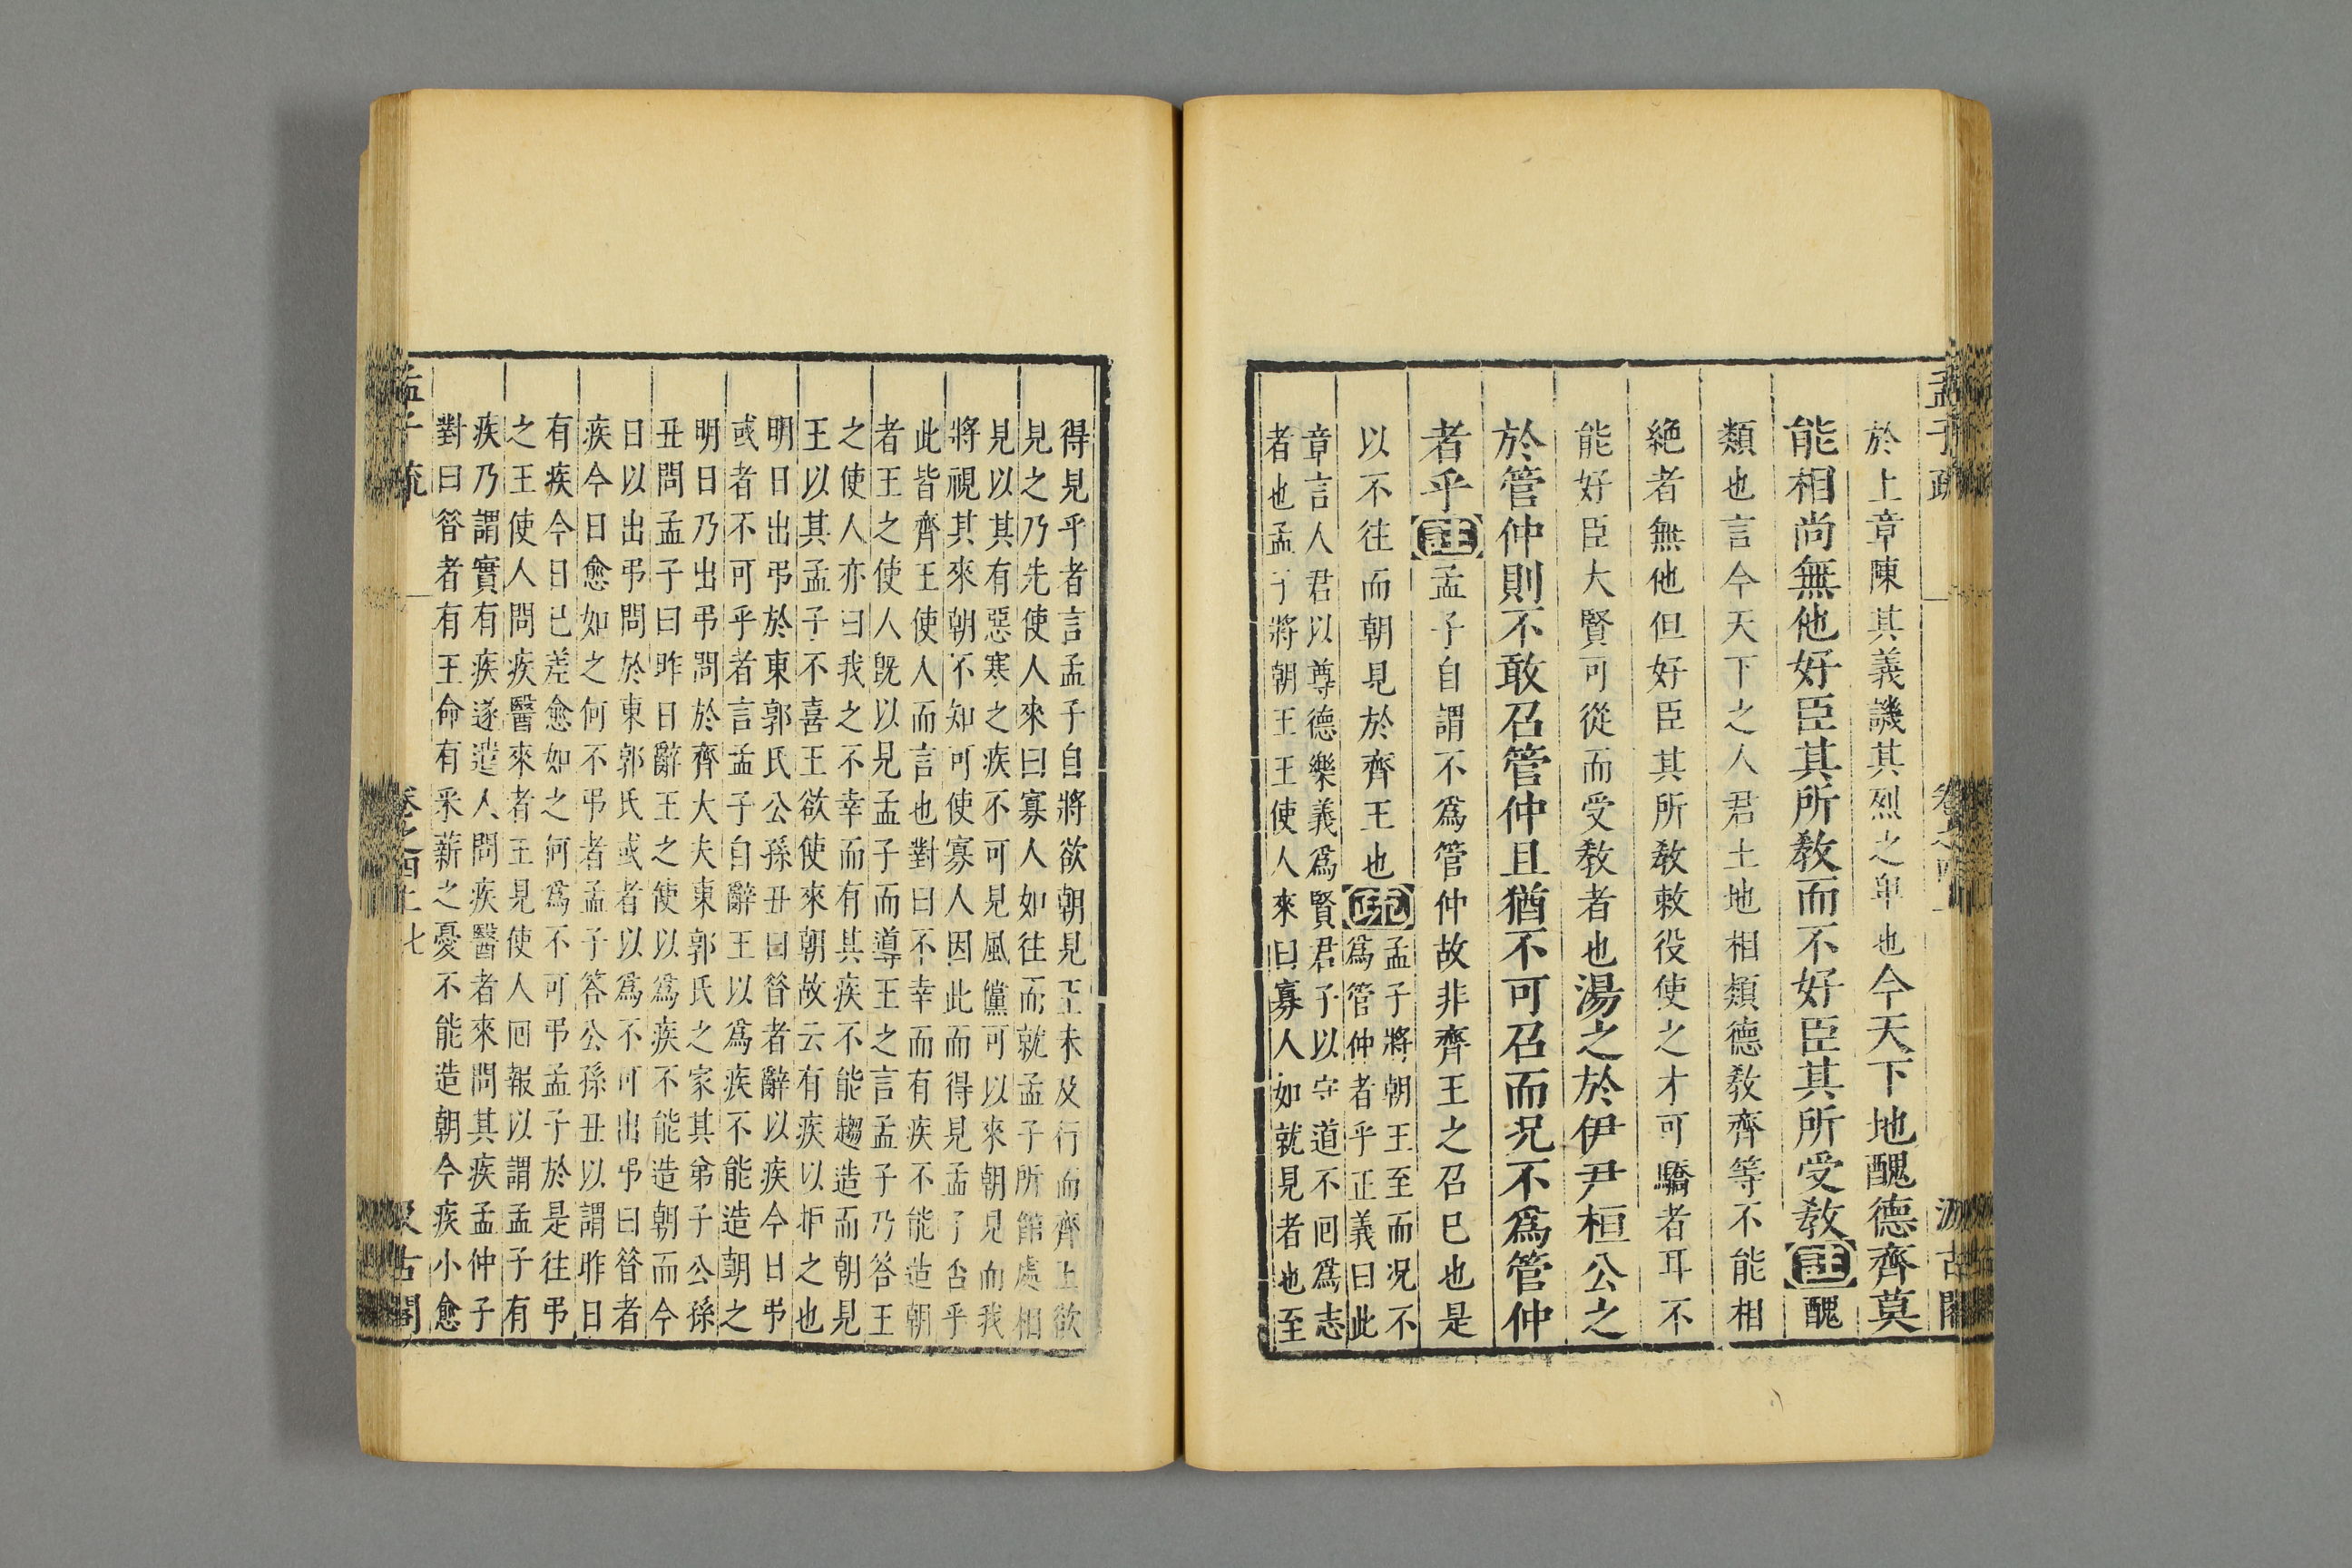 孟子疏
於上章陳其義譏其烈之卑也今天下地醜德齊莫
能相尚無他好臣其所敎而不好臣其所受敎註醜
類也言今天下之人君土地相類德敎齊等不能相
絶者無他但好臣其所敎敕役使之才可驕者耳不
能好臣大賢可從而受敎者也湯之於伊尹桓公之
於管仲則不敢召管仲且猶不可召而况不爲管仲
者乎註孟子自謂不爲管仲故非齊王之召巳也是
以不往而朝見於齊王也疏孟子將朝王至而况不
爲管仲者乎正義曰此
章言人君以尊德樂義爲賢君子以守道不囘爲志
者也孟子將朝王王使人來曰寡人如就見者也至
得見乎者言孟子自將欲朝見王未及行而齊王欲
見之乃先使人來曰寡人如往而就孟子所館處相
見以其有惡寒之疾不可見風儻可以來朝見而我
將視其來朝不知可使寡人因此而得見孟子否乎
此皆齊王使人而言也對曰不幸而有疾不能造朝
者王之使人旣以見孟子而導王之言孟子乃荅王
之使人亦曰我之不幸而有其疾不能趨造而朝見
王以其孟子不喜王欲使來朝故云有疾以拒之也
明日出弔於東郭氏公孫丑曰昝者辭以疾今日弔
或者不可乎者言孟子自辭王以爲疾不能造朝之
明日乃出弔問於齊大夫東郭氏之家其弟子公孫
丑問孟子曰昨日辭王之使以爲疾不能造朝而今
日以出弔問於東郭氏或者以爲不可出弔曰昝者
疾今日愈如之何不弔者孟子答公孫丑以謂昨日
有疾今日已差愈如之何爲不可弔孟子於是往弔
之王使人問疾醫來者王見使人囘報以謂孟子有
疾乃謂實有疾遂遣人問疾醫者來問其疾孟仲子
對曰昝者有王命有采薪之憂不能造朝今疾小愈
孟子疏
卷之四上
七
汲古閣